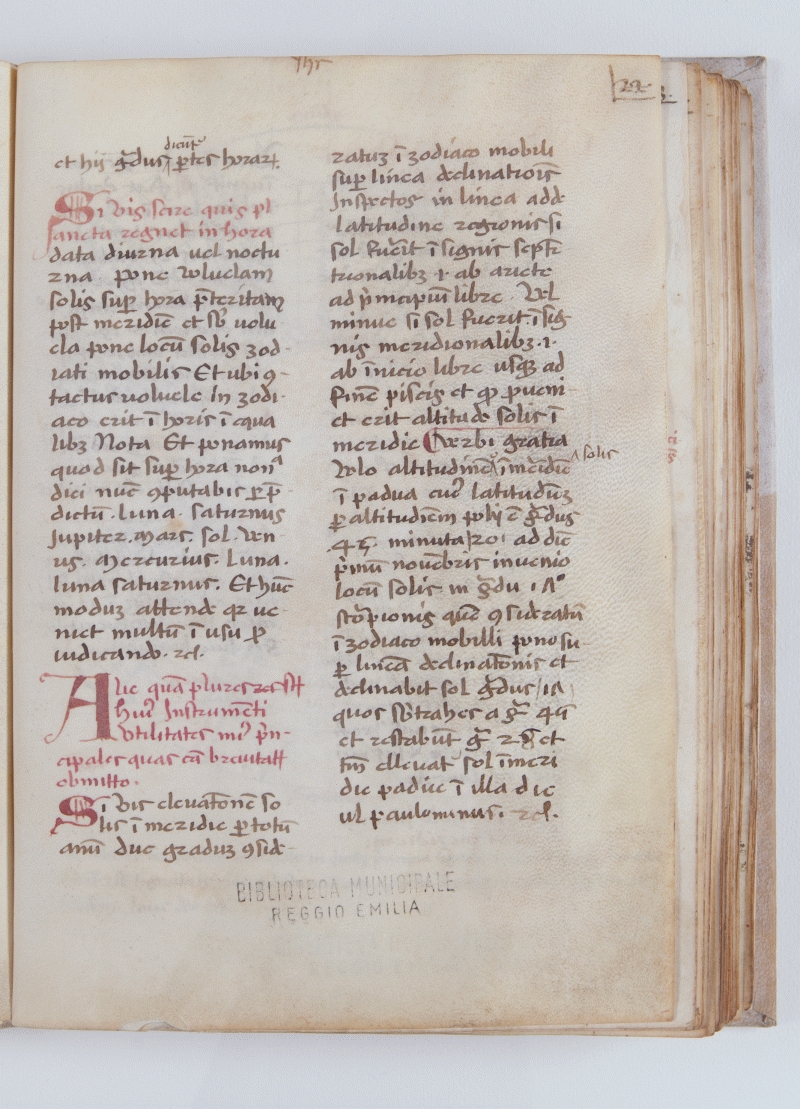 yhs
22
dicũt̃
et hij g̃dus p̃tes horaꝝ.
Si vis scire quis pl
aneta regnet in hora
data diurna uel noctu
rna . pone voluelam
solis sup̃ hora p̃teritam
post meridiẽ et sb̃ uolu
ela pone locũ solis zod-
iati mobilis Et ubi ꝯ-
tactus voluele in zodi-
aco erit ĩ horis ĩ equa
libꝫ Nota Et ponamus
quod sit sup̃ hora nonᵃ
diei nũc ꝯputabis ꝑ p̃-
dictũ . luna . saturnus
Jupiter . mars . sol . ven
us . Mercurius . Luna .
luna saturnus . Et hũc
moduꝫ attende qꝛ ue
niet multũ ĩ usu ꝓ
iudicando . rel̃ .
Alie quã plures res
huiꝰ Instrumẽti
Vtilitates mꝰ p̃n-
cipales quas cã breuitat̃
obmitto .
Si vis eleuatõnem so
lis ĩ meridie ꝑ totũ
anũ duc graduꝫ ꝯside-
ratuꝫ ĩ zodiaco mobili
sup̃ linea declinatiõis
Inspectos in linea adde
latitudine regionis si
sol fuẽit ĩ signis septẽ
trionalibꝫ .i. ab ariete
ad p̃incipiũ libre . Vel
minue si sol fuerit . ĩ sig-
nis meridionalibꝫ .i.
ab ĩnicio libre usqꝫ ad
finẽ piscis et qꝫ ꝓueni-
et erit altitudo solis ĩ
meridie Verbi gratia
Volo altitudinẽ ĩ meridie
solis
ĩ padua cuiꝰ latitudinꝫ
ꝑ altitudiẽm poli ẽ g̃dus
.45. minuta 20 ad die
p̃imũ nouẽbris inuenio
locũ solis in g̃du
scorpionis quẽ ꝯsideratũ
ĩ zodiaco mobilli pono su-
ꝑ lineã declinatõnis et
declinabit sol g̃dus
quos sb̃trahes a g̃ 45
et restabũt g̃ et
tm̃ elleuat̃ sol ĩ meri
die padue ĩ illa die
ul paulominus . rel̃ .
BIBLIOTECA MUNICIPALE
REGGIO EMILIA